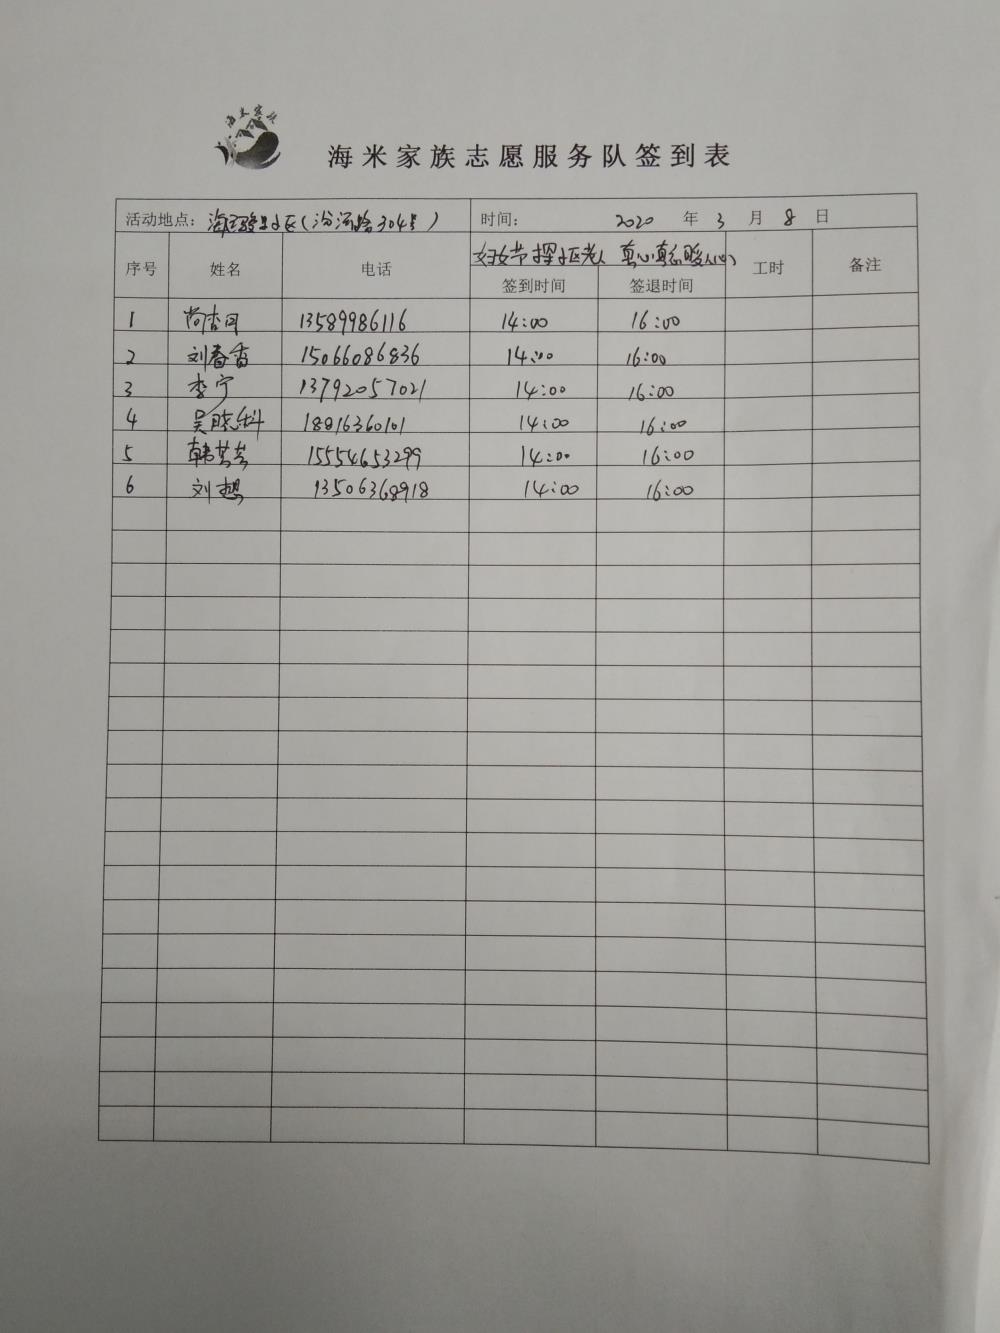 海米家族
海米家族志愿服务队签到表
活动地点: 小区(汾河路304号) 时间: 2020 年 3 月 8 日
序号 姓名 电话 妇女节探社区老人 真心真意暖人心 工时 备注
签到时间 签退时间
1 尚杏月 13589986116 14:00 16:00
2 刘春香 15066086836 14:00 16:00
3 李宁 13792057021 14:00 16:00
4 吴晓科 18816360101 14:00 16:00
5 韩芳芳 15554653299 14:00 16:00
6 刘想 13506368918 14:00 16:00